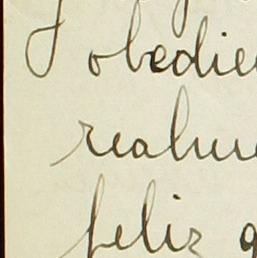 obedie
realme
feliz q